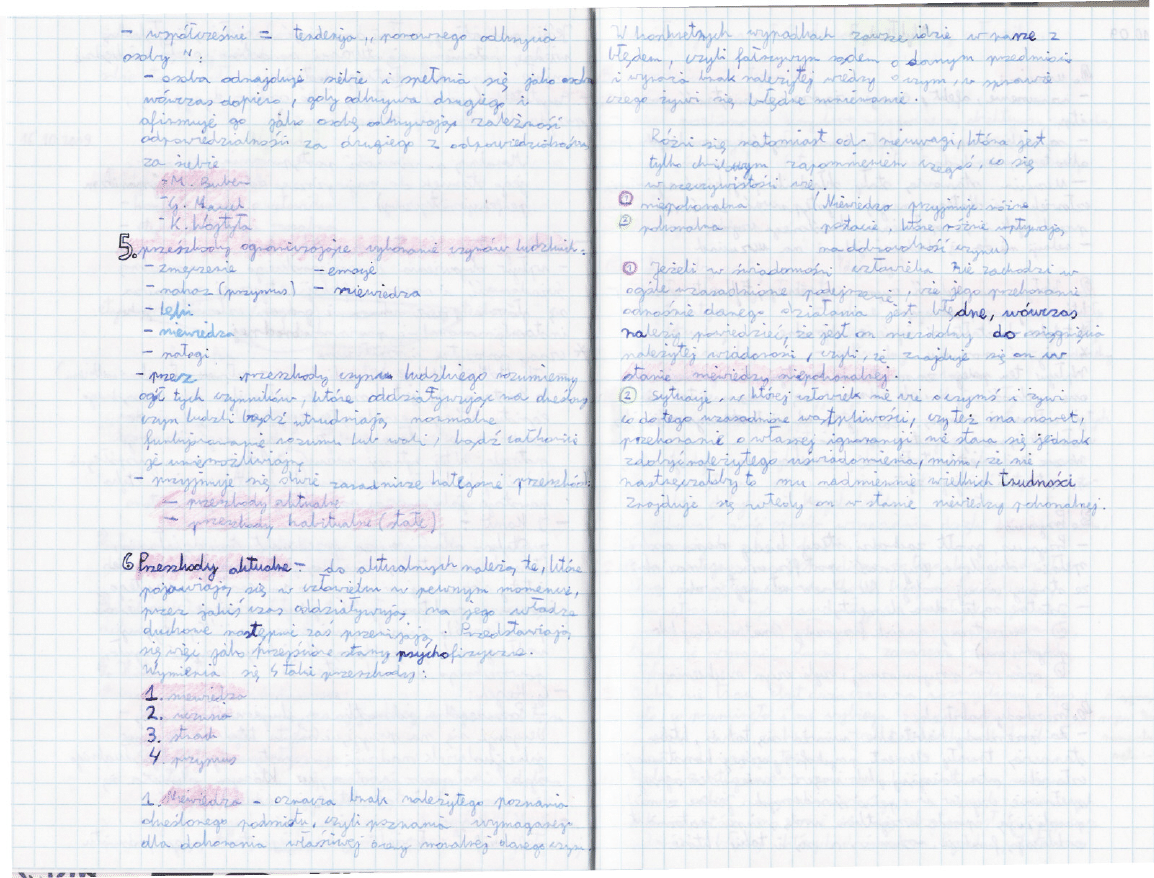 - współcześnie = tendencja „ ponownego odkrycia
osoby ":
- osoba odnajduje siebie i spełnia się jako osoba
wówczas dopiero, gdy odkrywa drugiego i
afirmuje go jako osobę odkrywając zależność
odpowiedzialności za drugiego z odpowiedzialnością
za siebie
- M. Buber
- G. Marcel
- K. Wojtyła
5. przeszkody ograniczające wykonanie czynów ludzkich:
- zmęczenie - emocje
- nakaz (przymus) - niewiedza
- lęki
- niewiedza
- nałogi
- przez przeszkody czynu ludzkiego rozumiemy
ogół tych czynników, które oddziaływując na dany
czyn ludzki bądź utrudniają normalne
funkcjonowanie rozumu lub woli, bądź całkowicie
je uniemożliwiają
- przyjmuje się dwie zasadnicze kategorie przeszkód:
- przeszkody aktualne
- przeszkody habitualne (stałe)
6 Przeszkody aktualne - do aktualnych należą te, które
pojawiają się w człowieku w pewnym momencie,
przez jakiś czas oddziaływują na jego władze
duchowe następnie zaś przemijają. Przedstawiają
się więc jako przejściowe stany psychofizyczne.
Wymienia się 4 takie przeszkody:
1. niewiedza
2. uczucia
3. strach
4. przymus
1. Niewiedza - oznacza brak należytego poznania
określonego podmiotu, czyli poznania wymaganego
dla dokonania właściwej oceny moralnej danego czynu.
W konkretnych wypadkach zawsze idzie w parze z
błędem, czyli fałszywym sądem o danym przedmiocie
i wyraża brak należytej wiedzy o czym, w sprawie
czego żywi się błędne mniemanie.
Różni się natomiast od nieuwagi, która jest
tylko chwilowym zapomnieniem czegoś, co się
w rzeczywistości wie.
① niepokonalna (Niewiedza przyjmuje różne
② pokonalna postacie, które różnie wpływają
na dobrowolność czynu)
① Jeżeli w świadomości człowieka nie zachodzi w
ogóle uzasadnione podejrzenie, że jego przekonanie
odnośnie danego działania jest błędne, wówczas
należy powiedzieć, że jest on niezdolny do osiągnięcia
należytej wiadomości, czyli, że znajduje się on w
stanie niewiedzy niepokonalnej.
② sytuacje, w której człowiek nie wie o czymś i żywi
co do tego uzasadnione wątpliwości, czy też ma nawet,
przekonanie o własnej ignorancji nie stara się jednak
zdobyć należytego uświadomienia, mimo, że nie
nastręczałoby to mu nadmiernie wielkich trudności
Znajduje się wtedy on w stanie niewiedzy pokonalnej.